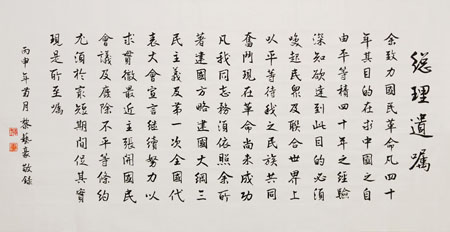 總理遺囑
余致力國民革命凡四十
年其目的在求中國之自
由平等積四十年之經驗
深知欲達到此目的必須
喚起民眾及聯合世界上
以平等待我之民族共同
奮鬥現在革命尚未成功
凡我同志務須依照余所
著建國方略建國大綱三
民主義及第一次全國代
表大會宣言繼續努力以
求貫徹最近主張開國民
會議及廢除不平等條約
尤須於最短期間促其實
現是所至囑
丙申年月藝豪敬錄